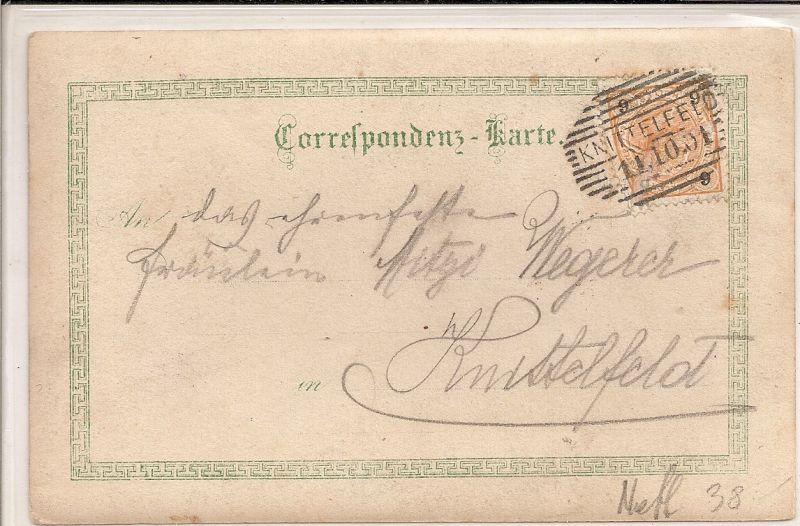 Correspondenz-Karte.
9 9
KNITTELFELD
11.10.01
9
An das ehrenfeste
Fräulein Mitzi Wegerer
in Knittelfeld
38